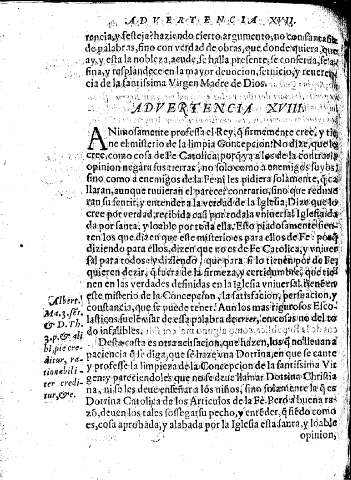 ADVERTENCIA XVII.
rencia, y festeja: haziendo cierto argumento, no con sufanas
de palabras, sino con verdad de obras, que donde quiera, que
ay, y esta la nobleza, aende, se halla presente, se conserua, se
fina, y resplandece en la mayor deuocion, seruicio, y reueren
cia de la santissima Virgen Madre de Dios.
ADVERTENCIA XVIII.
ANimosamente professa el Rey, q̃ firmemente cree, y tie
ne el misterio de la limpia Concepcion: No dize, que le
cree, como cosa de Fe Catolica; porq̃ ya a los de la contraria
opinion negàra sus tierras, no solo como a enemigos suyos,
sino como a enemigos de la Fe: ni les pidiera solamente, q̃ ca
llaran, aunque tuuieran el parecer contrario, sino que reduxe
ran su sentir, y entender a la verdad de la Iglesia; Dize que lo
cree por verdad, recibida casi por toda la vniuersal Iglesia, da
da por santa, y loable por toda ella. Esto piadosamente sien-
ten los que dizen que este misterio es para ellos de Fe:
diziendo para ellos, dizen que no es de Fe Catolica, y vniuer
sal para todos: y diziendo, que para si lo tienen por de Fe,
quieren dezir, q̃ fuera de la firmeza, y certidumbre, que tie-
nen en las verdades definidas en la Iglesia vniuersal, tienen en
este misterio de la Concepcion, la satisfacion, persuacion, y
constancia, que se puede tener. Aun los mas rigurosos Esco-
lasticos, suelen vsar desta palabra de creer, en cosas no del to
do infalibles.
Albert.
Ma. 3. sen.
& D. Th.
3. p. & ali
bi, pie cre
ditur, ra-
tionabili-
ter credi-
tur, &c.
Desta costa es otra acusacion, que hazen, los q̃ no lleuan a
paciencia q̃ se diga, que se haze vna Dotrina, en que se cante
y professe la limpieza de la Concepcion de la santissima Vir
gen: y pareciendoles que no se deue llamar Dotrina Christia
na, ni se les deue enseñar a los niños, sino solamente la q̃ es
Dotrina Catolica de los Articulos de la Fe. Pero a buena ra-
zõ, deuen los tales sossegar su pecho, y entẽder, q̃ siẽdo como
es, cosa aprobada, y alabada por la Iglesia esta santa, y loable
opinion,